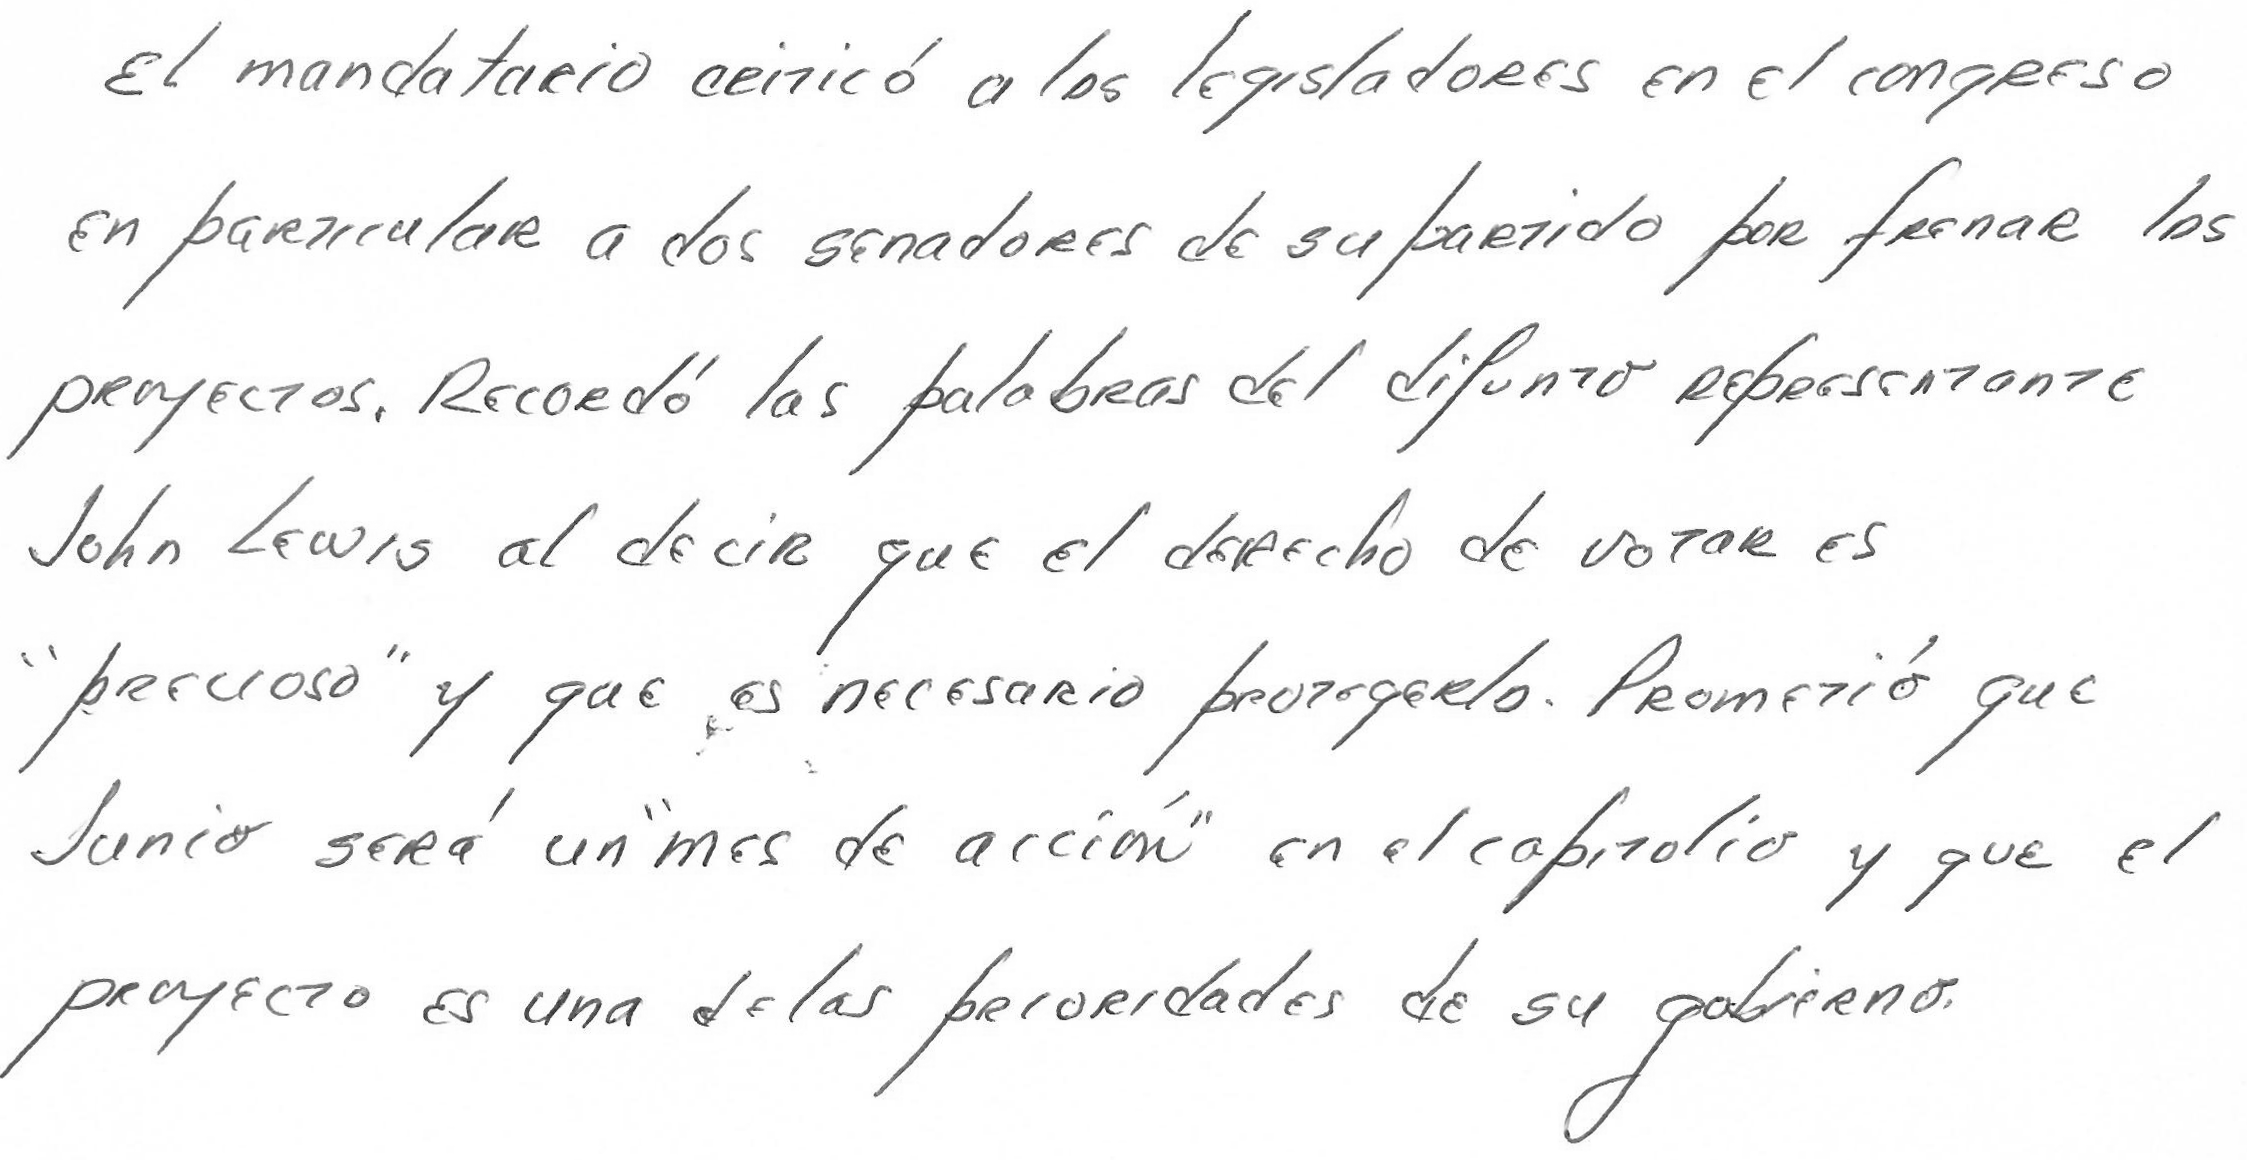 El mandatario criticó a los legisladores en el congreso
en particular a dos senadores de su partido por frenar los
proyectos. Recordó las palabras del difunto representante
John Lewis al decir que el derecho de votar es
"precioso" y que es necesario protegerlo. Prometió que
Junio será un "mes de acción" en el capitolio y que el
proyecto es una de las prioridades de su gobierno.